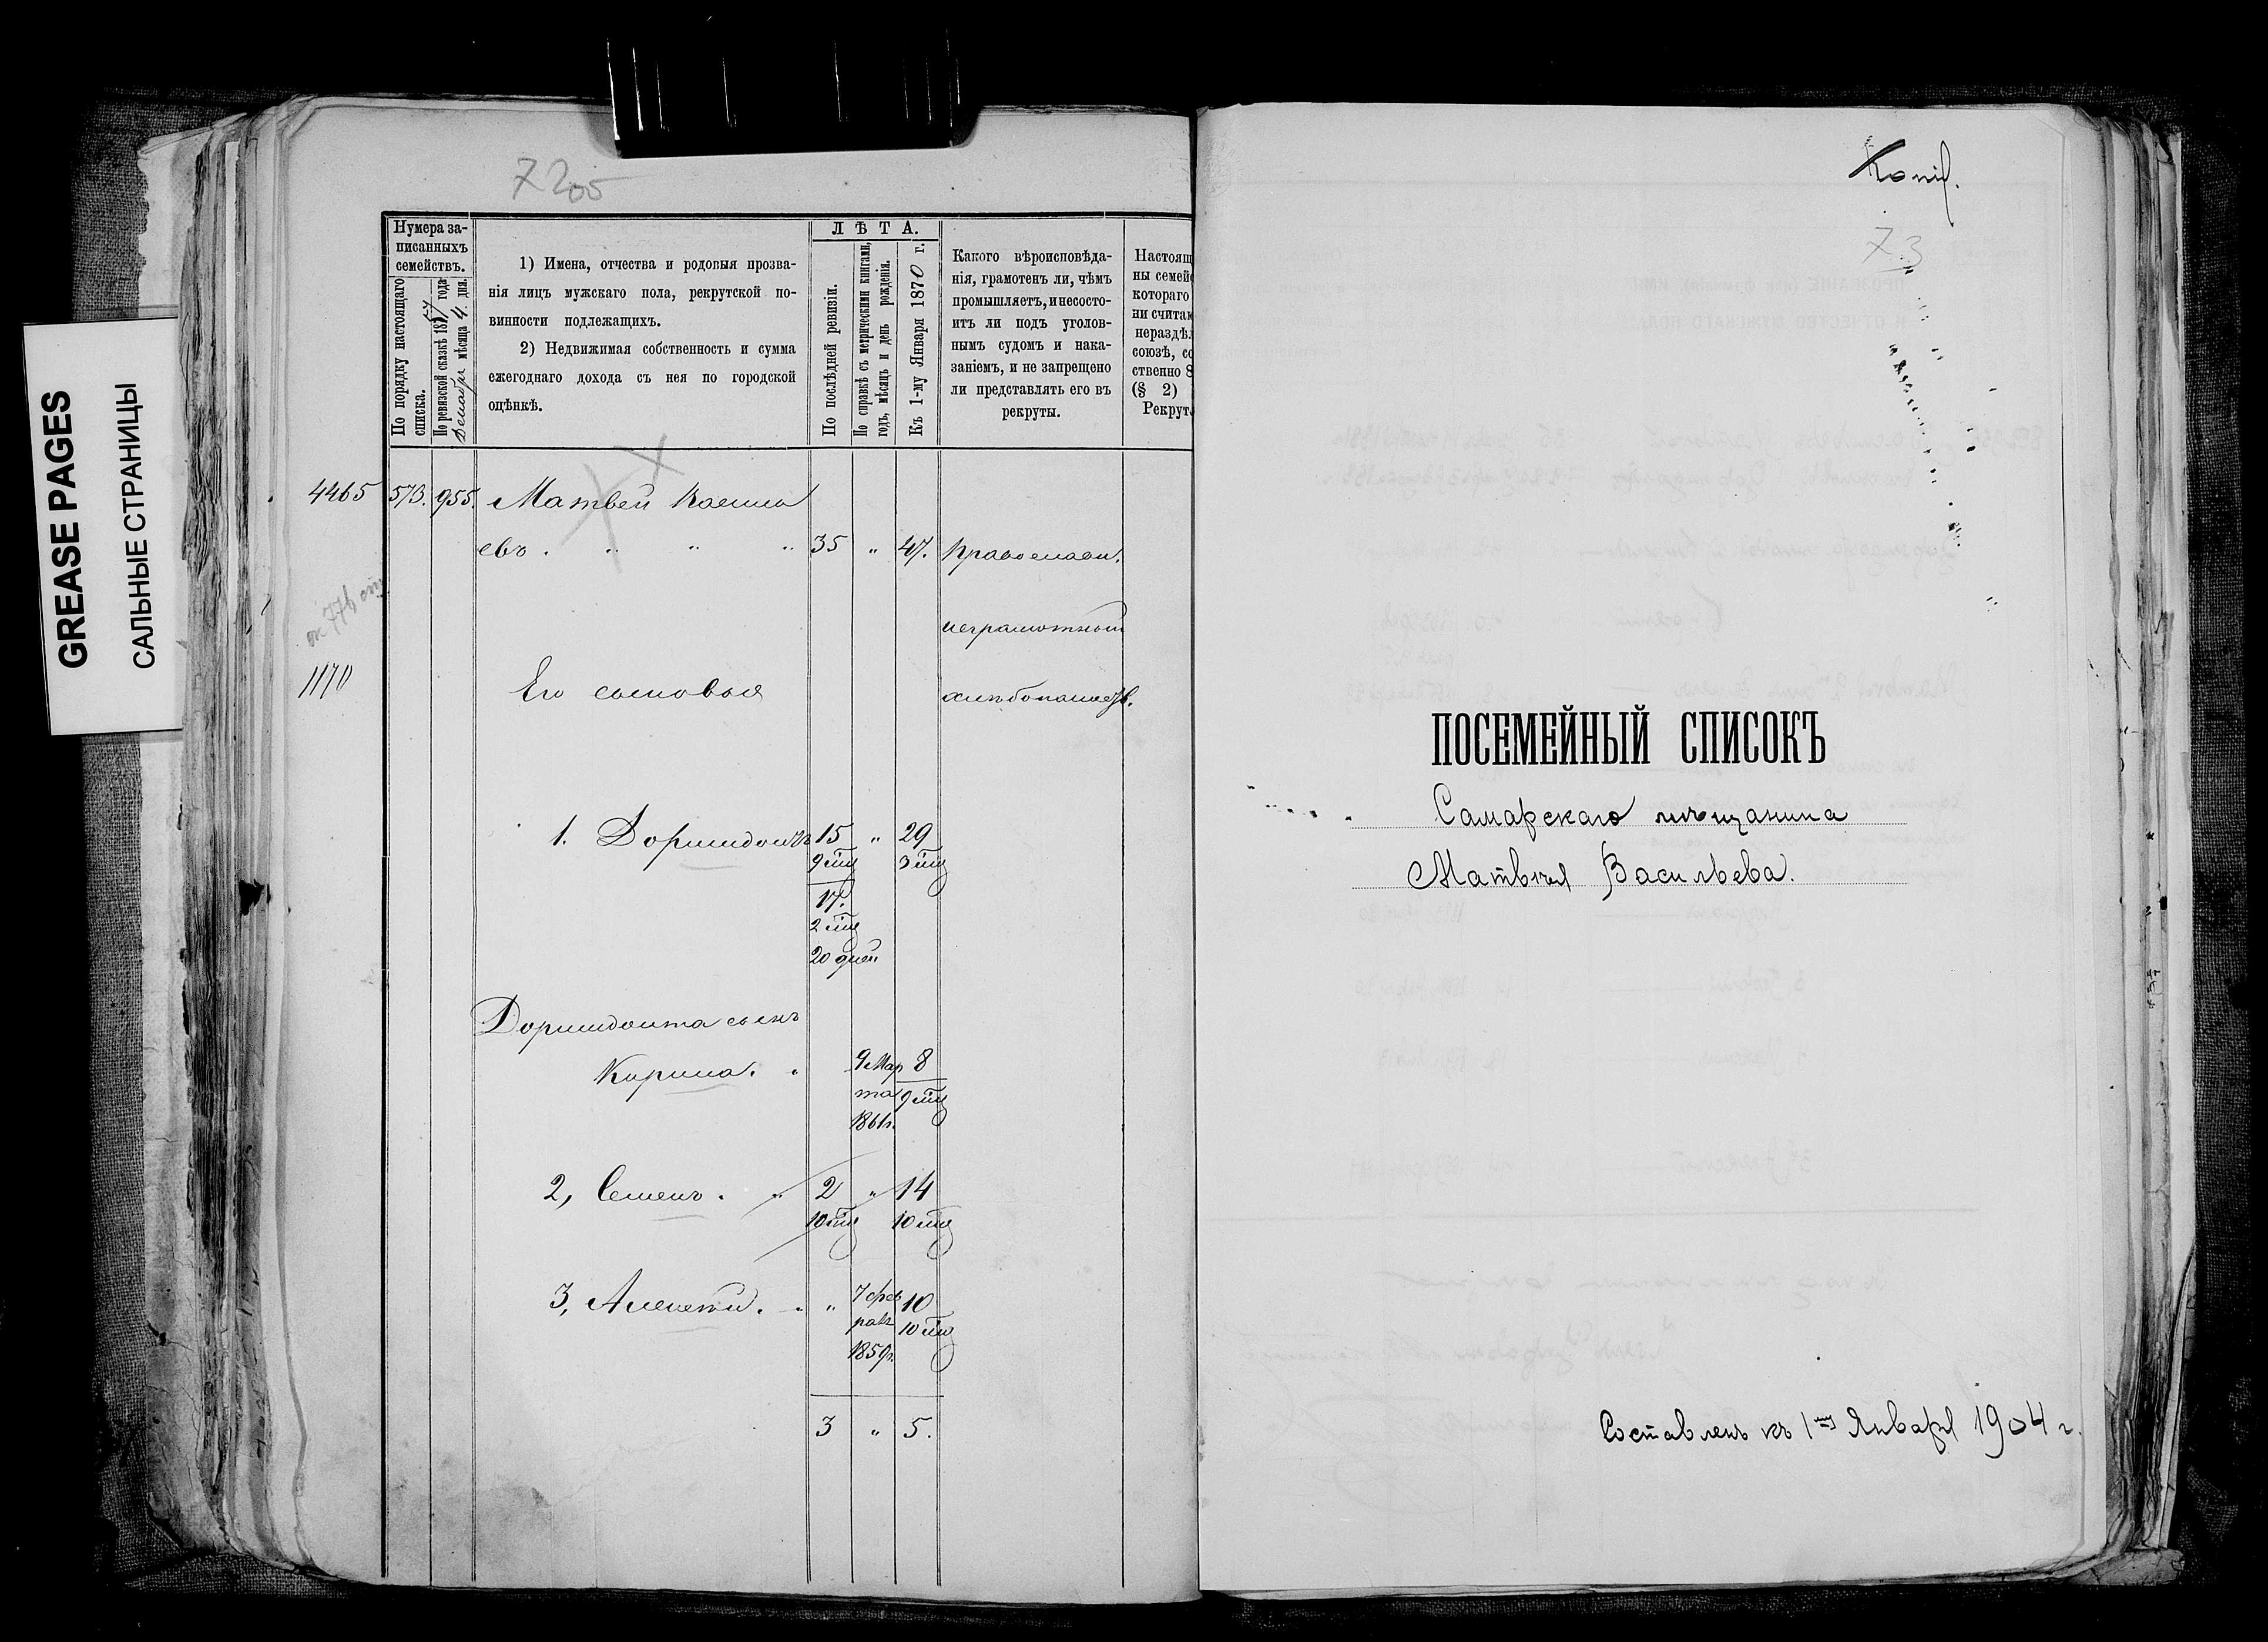 GREASE PAGES
САЛЬНЫЕ СТРАНИЦЫ
7205
Нумера за-
писанныхъ
семействъ.
По порядку настоящаго
списка.
По ревизской сказкѣ 1857 года
Декабря мѣсяца 4. дня.
1) Имена, отчества и родовыя прозва-
нія лицъ мужскаго пола, рекрутской по-
винности подлежащихъ.
2) Недвижимая собственность и сумма
ежегоднаго дохода съ нея по городской
оцѣнкѣ.
ЛѢТА.
По послѣдней ревизіи.
По справкѣ съ метрическими книгами,
годъ, мѣсяцъ и день рожденія.
Къ 1-му Января 1870 г.
Какого вѣроисповѣда-
нія, грамотенъ ли, чѣмъ
промышляетъ, и несосто-
итъ ли подъ уголов-
нымъ судомъ и нака-
заніемъ, и не запрещено
ли представлять его въ
рекруты.
Настоящ
ны семей
котораго
ни считаю
нераздѣл
союзѣ, со
ственно 8
(§ 2)
Рекрут
4465 573. 955. Матвей Василь
евъ . " " " 35 " 47. православн.
неграмотный
1170 Его сыновья хлѣбопашест.
1. Доримидонтъ 15 " 29
9 мц 3 мц
17.
2 мц
20 дней
Доримидонта сынъ
Кирила. 9 Мар 8
та 9 мц
1861г.
2, Семенъ. " 2 " 14
10 мц 10 мц
3, Алексей. " 7 фев 10
раля 10 мц
1859г.
3 " 5.
Копія.
73
ПОСЕМЕЙНЫЙ СПИСОКЪ
Самарскаго мѣщанина
Матвѣя Васильева.
Составленъ къ 1му Января 1904 г.